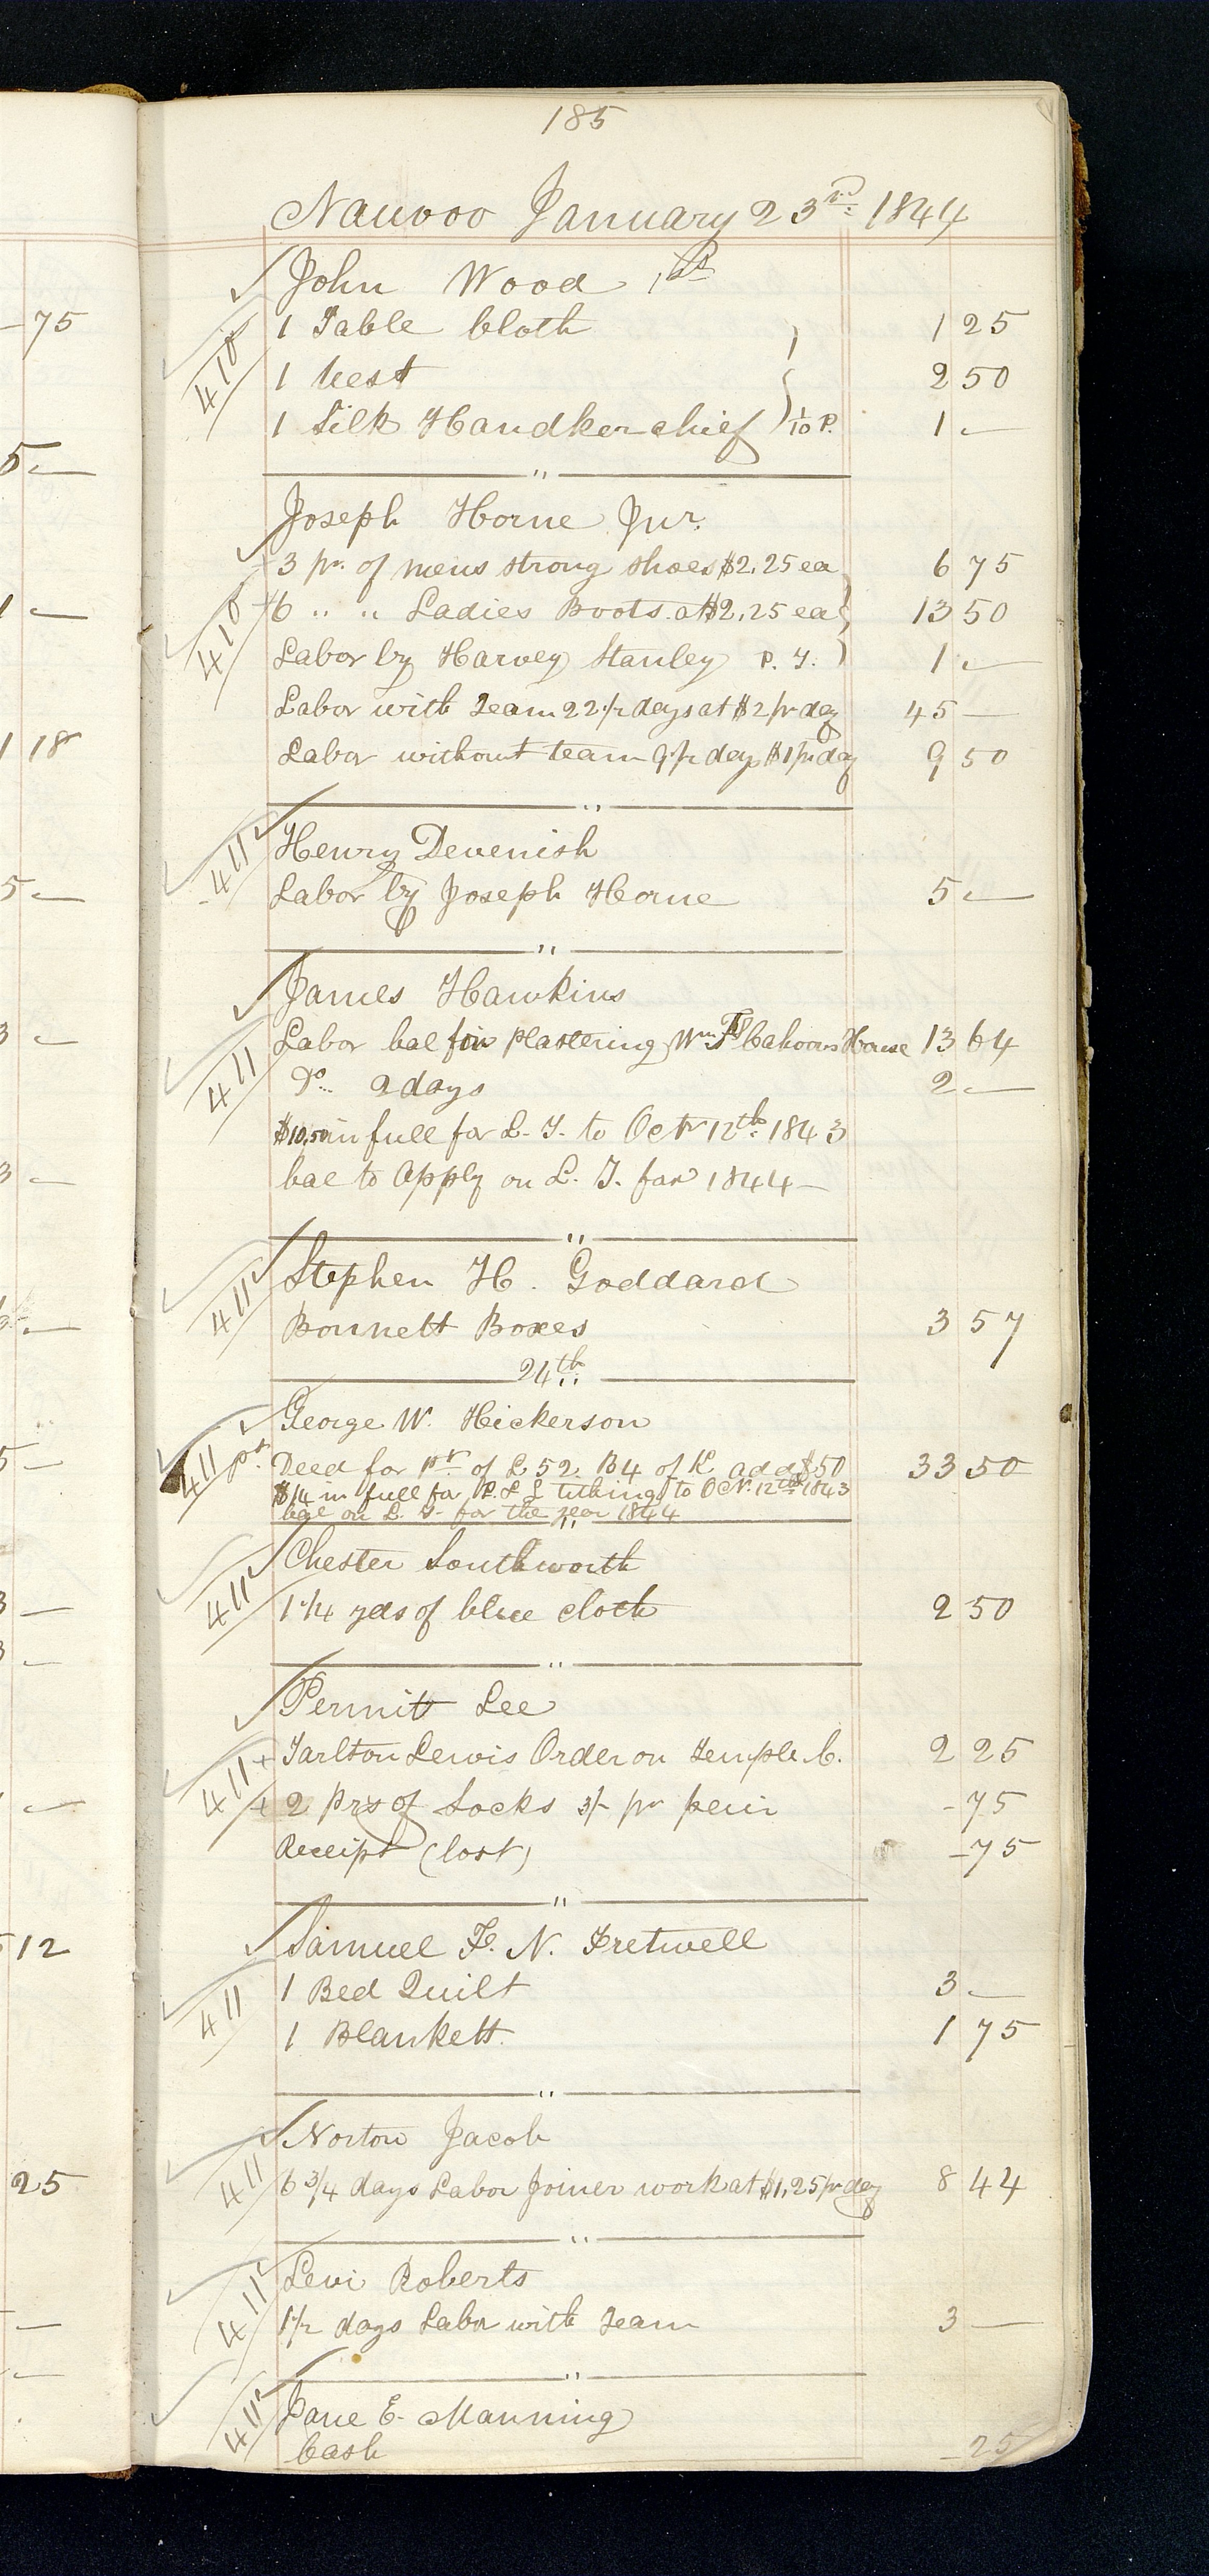 185
Nauvoo January 23rd 1844
John Wood 1st
1 Table Cloth 1 25
410
1 Vest 2 50
1 Silk Handkerchief 1/10 P. 1 —
"
Joseph Horne Jur.
3 pr. of mens strong shoes $2.25 ea 6 75
6 " " Ladies Boots at $2.25 ea 13 50
410
Labor by Harvey Stanley P. T. 1 —
Labor with Team 22 1/2 days at $2 pr day 45 —
Labor without team 9 1/2 days $1 pr day 9 50
"
411
Henry Devenish
Labor by Joseph Horne 5 —
"
James Hawkins
Labor bal for Plastering Wm F Cahoons House 13 64
411
Do 2 days 2 —
$10.50 in full for L. T. to Octr 12th 1843
bal to Apply on L. T. for 1844 —
"
Stephen H. Goddard
411
Bonnett Boxes 3 57
24th
George W. Hickerson
411 pd.
Deed for pt. of L 52 B4 of K add $50 33 50
$14 in full for P. & L tithing to Oct. 12th 1843
bal on L. T. for the year 1844
"
Chester Southworth
411
1 1/4 yds of blue cloth 2 50
"
Permitt Lee
Tarlton Lewis Order on Temple C. 2 25
411
2 prs of Socks 3/- pr pair - 75
Receipt (lost) - 75
"
Samuel F. N. Fretwell
1 Bed Quilt 3 —
411
1 Blankett 1 75
"
Norton Jacob
411
6 3/4 days Labor Joiner work at $1.25 pr day 8 44
"
Levi Roberts
411
1 1/2 days Labor with Team 3 —
"
Jane E. Manning
411
Cash - 25